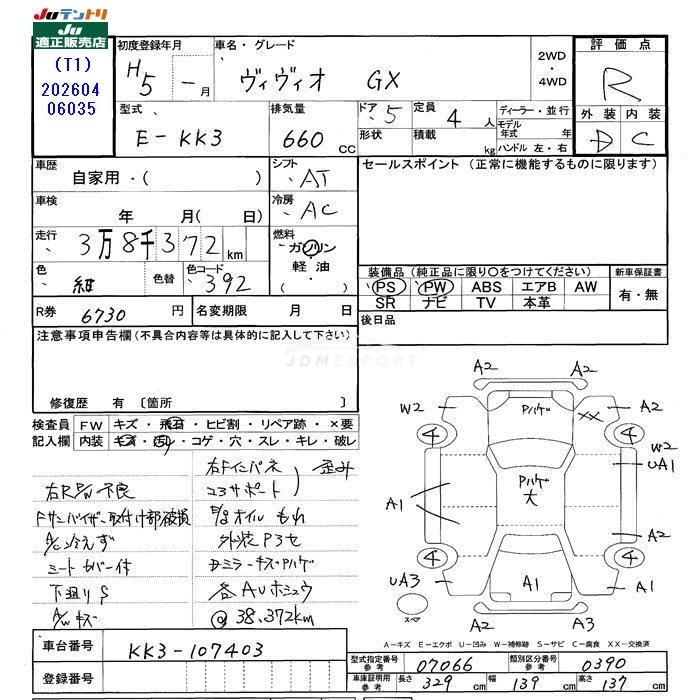 JUテントリ
JU
適正販売店
(T1)
202604
06035
初度登録年月
H5 - 月
車名・グレード
ヴィヴィオ GX
2WD
・
4WD
評価点
R
外装 内装
D C
型式
E-KK3
排気量
660 cc
ドア 5
定員 4 人
形状
積載 kg
ディーラー・並行
モデル年式 年
ハンドル 左・右
車歴
自家用・( )
シフト
AT
セールスポイント (正常に機能するものに限ります)
車検
年 月( 日)
冷房
AC
走行
3万8千372 km
燃料
ガソリン
軽油・
( )
色
紺
色替
色コード
392
装備品 (純正品に限り○をつけてください)
PS PW ABS エアB AW
SR ナビ TV 本革
新車保証書
有・無
R券 6730 円
名変期限 月 日
後日品
注意事項申告欄(不具合内容等は具体的に記入して下さい)
JDMEXPORT
修復歴 有 〔箇所 〕
検査員 FW キズ・飛石・ヒビ割・リペア跡・×要
記入欄 内装 キズ・汚レ・コゲ・穴・スレ・キレ・破レ
右Fインパネ
コアサポート
歪み
右RP/W不良
Fサンバイザー取付け部破損
A/C冷えず
シートカバー付
下廻りS
A/Wキズ
E/gオイルもれ
外装P3セ
Dミラーキズ・Pハゲ
各AUホシュウ
@38,372km
A2
A2
W2
Pハゲ
XX
A2
4
4
W2
UA1
Pハゲ
大
A1
A2
4
4
UA3
A1
A1
スペア
A2
A3
A-キズ E-エクボ U-凹み W-補修跡 S-サビ C-腐食 XX-交換済
車台番号
KK3-107403
登録番号
型式指定番号
参考
07066
類別区分番号
参考
0390
車庫証明用
参考
長さ 329 cm
幅 139 cm
高さ 137 cm